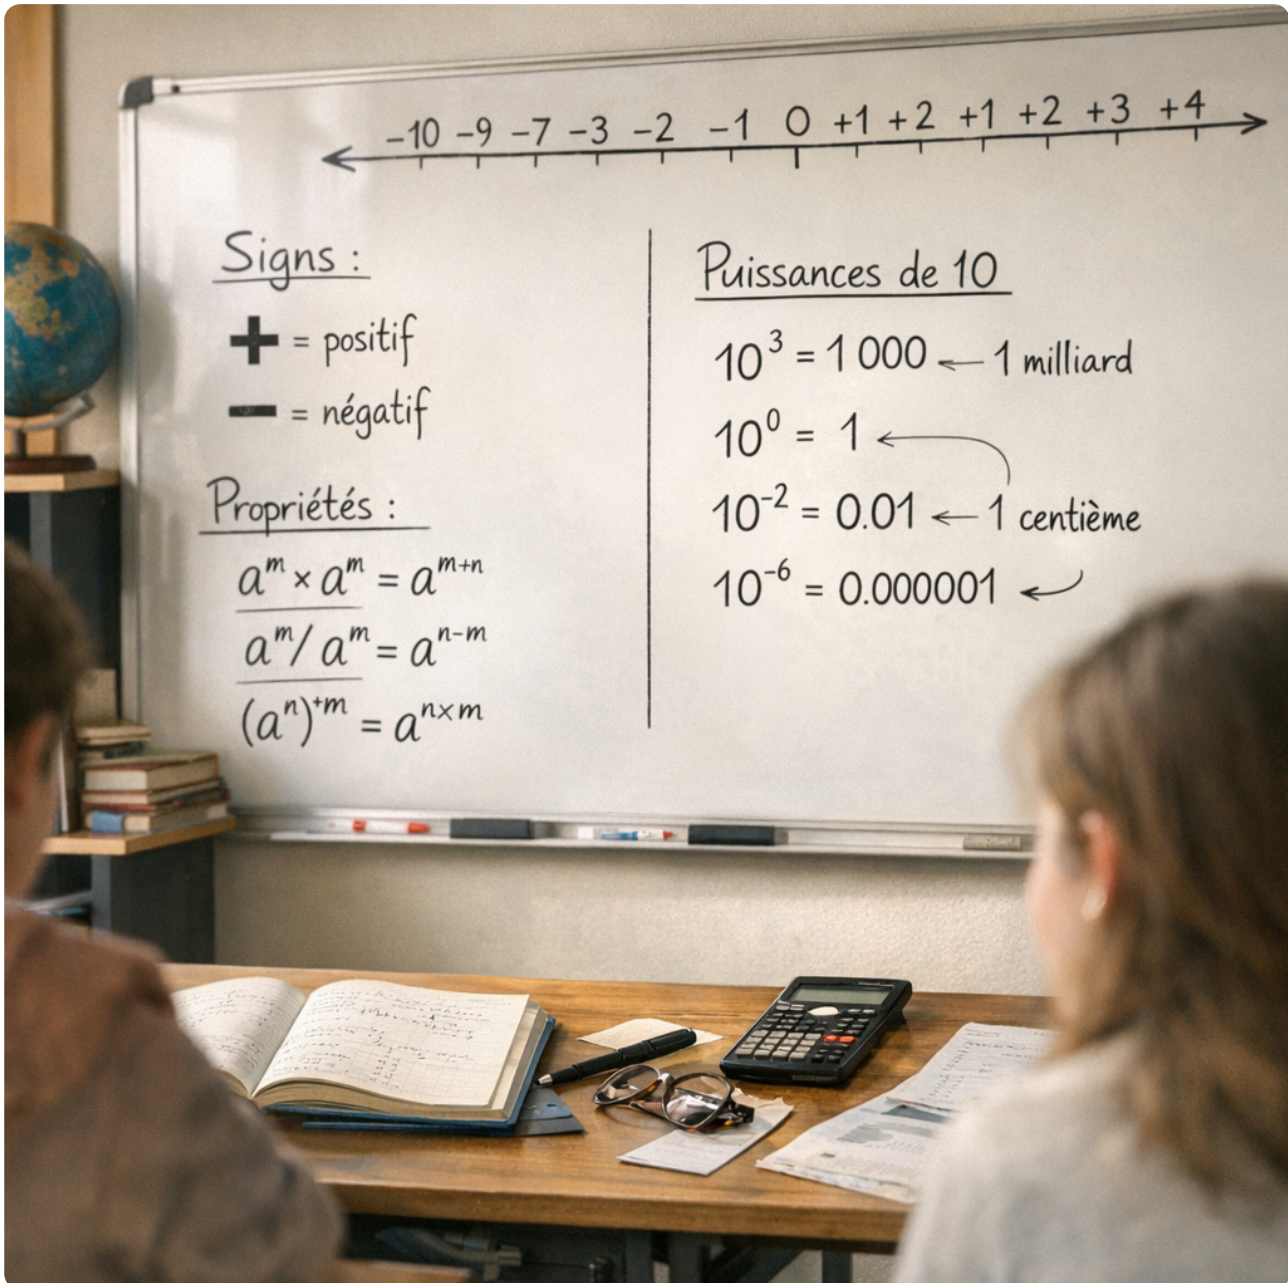 −10 −9 −7 −3 −2 −1 0 +1 +2 +1 +2 +3 +4
Signs :
+ = positif
− = négatif
Propriétés :
aᵐ × aᵐ = aᵐ⁺ⁿ
aᵐ/ aᵐ = aⁿ⁻ᵐ
(aⁿ)⁺ᵐ = aⁿˣᵐ
Puissances de 10
10³ = 1 000 ← 1 milliard
10⁰ = 1 ←
10⁻² = 0.01 ← 1 centième
10⁻⁶ = 0.000001 ←